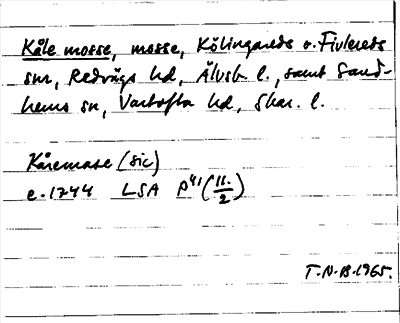 Kåle mosse, mosse, Kölingareds o. Fivlereds
snr, Redvägs hd, Älvsb. l., samt Sand-
hems sn, Vartofta hd, Skar. l.
Kåremase (sic)
c. 1744 LSA P41 (11./2)
T.N-B. 1965.